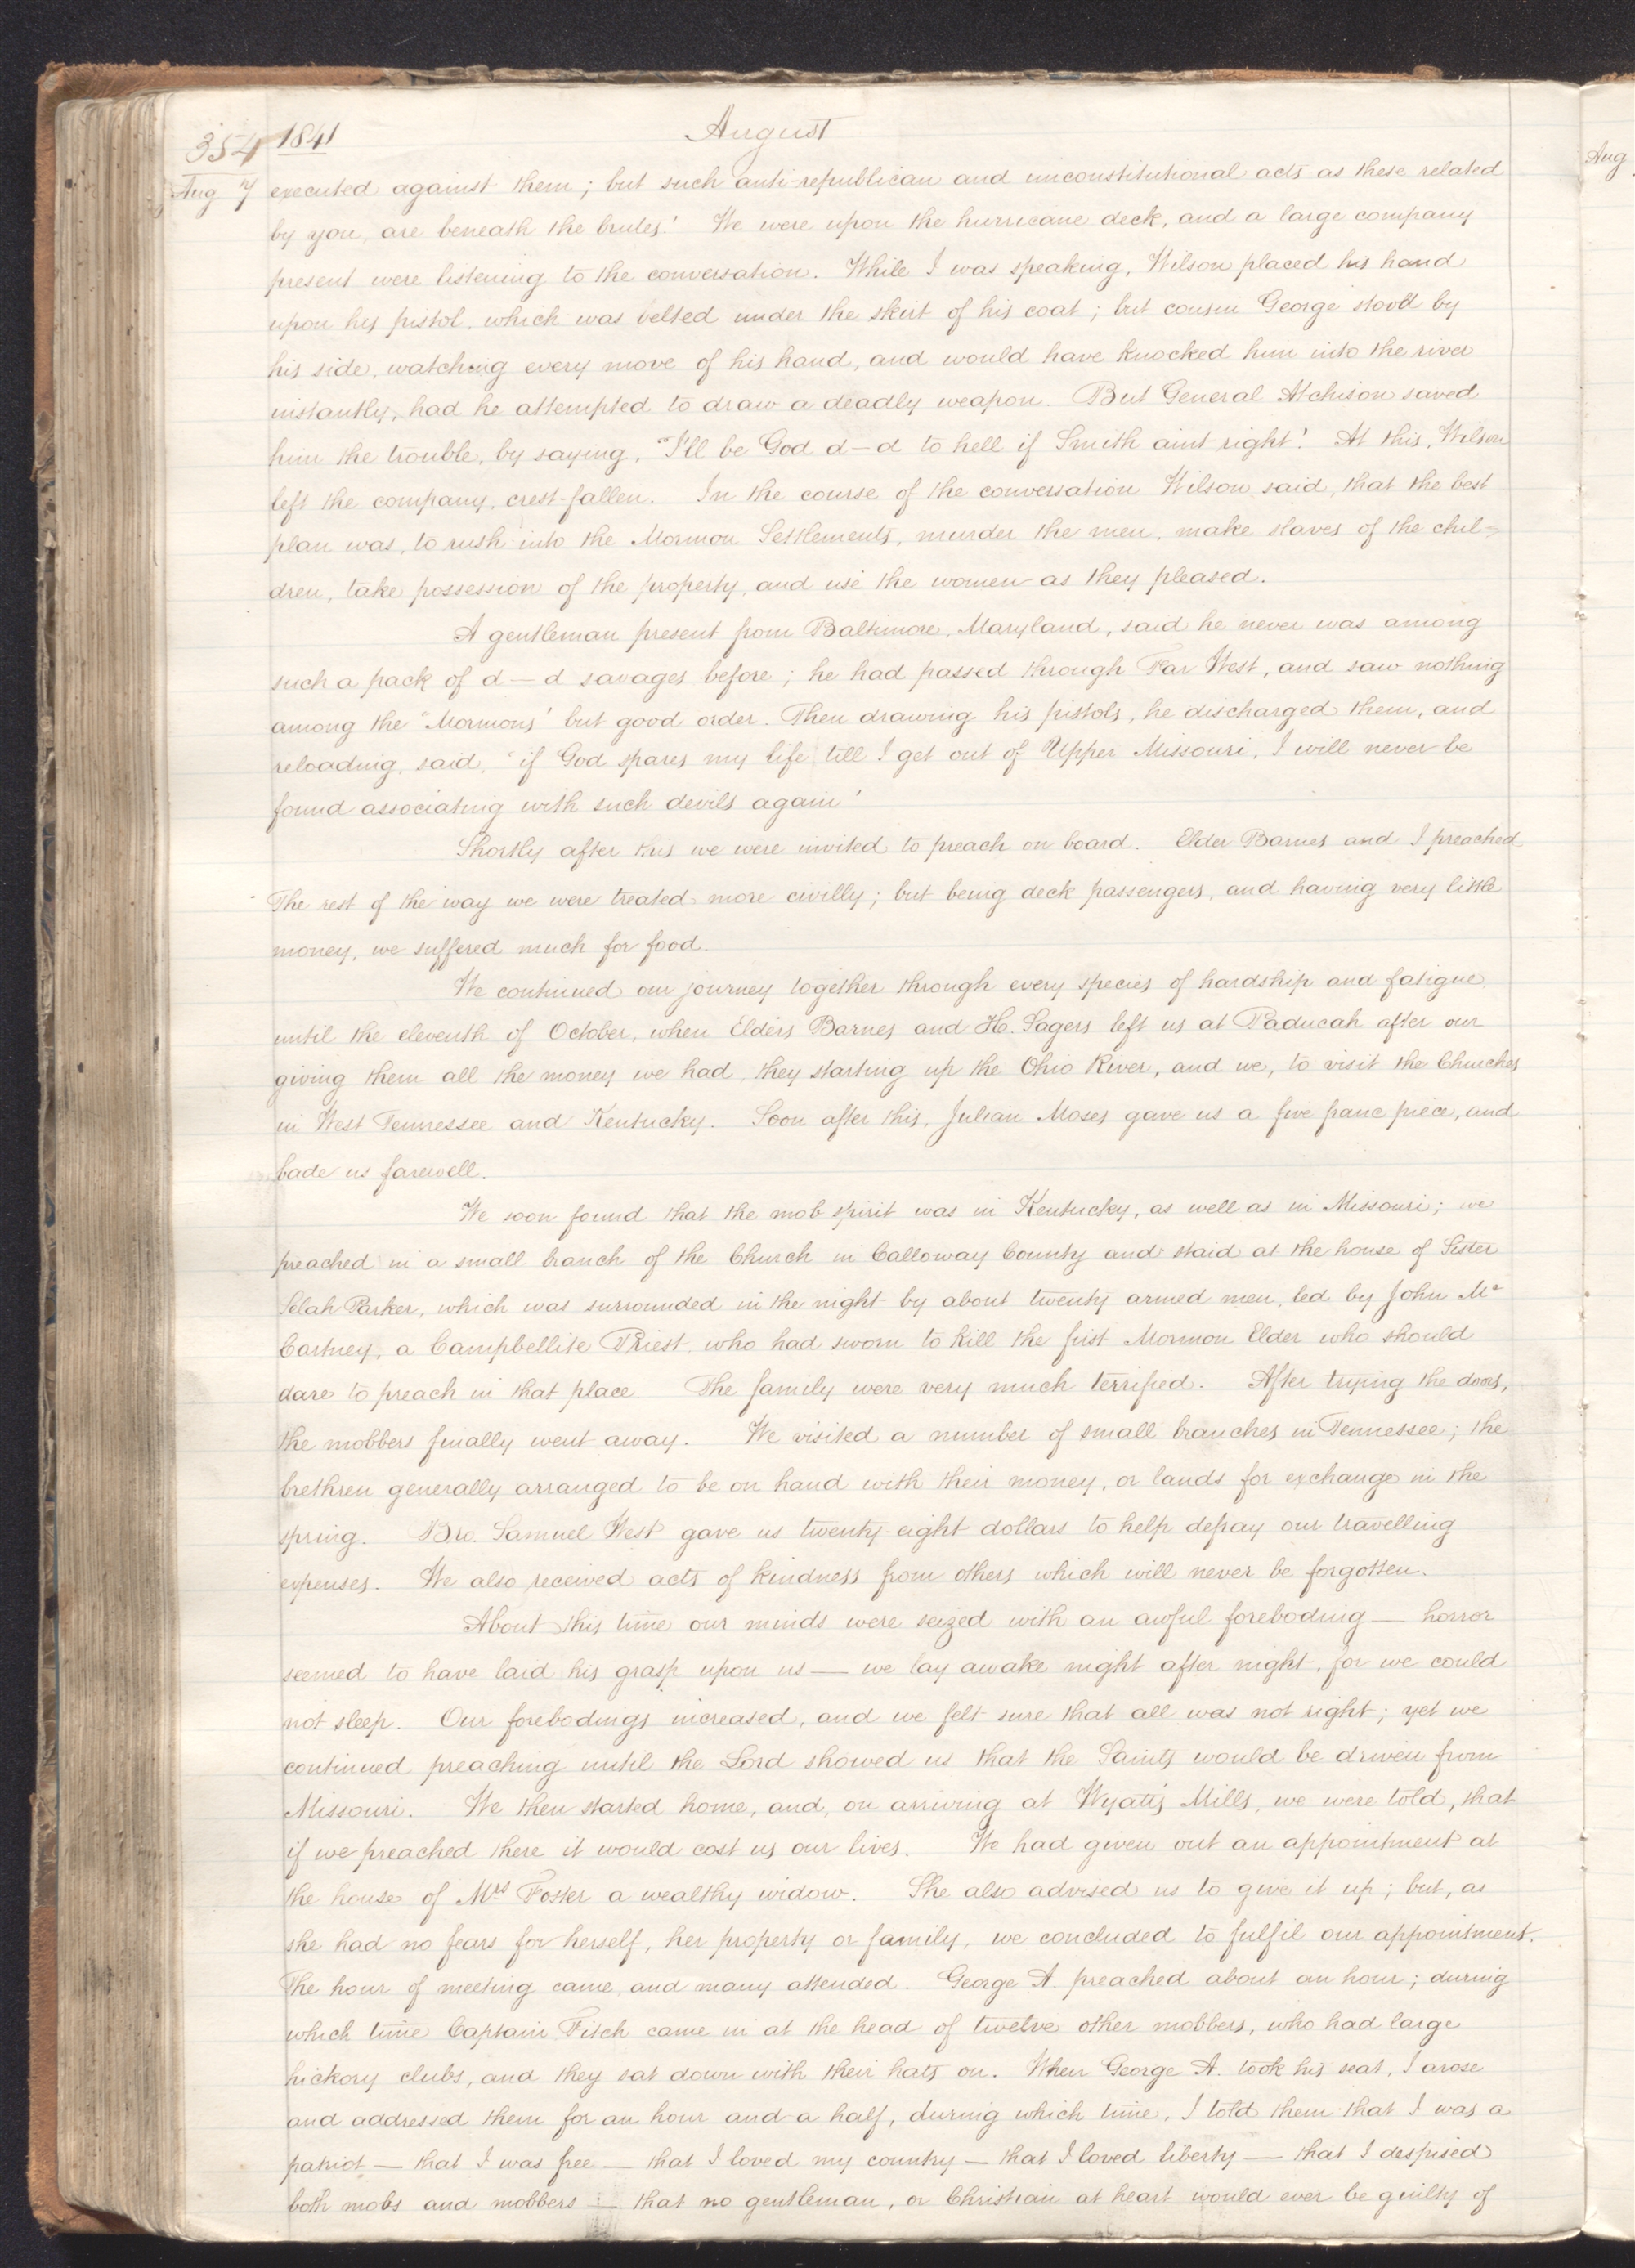 354 1841 August
Aug 7 executed against them; but such anti-republican and unconstitutional acts as these related
by you, are beneath the brutes.' We were upon the hurricane deck, and a large company
present were listening to the conversation. While I was speaking, Wilson placed his hand
upon his pistol, which was belted under the skirt of his coat; but cousin George stood by
his side, watching every move of his hand, and would have knocked him into the river
instantly, had he attempted to draw a deadly weapon. But General Atchison saved
him the trouble, by saying, "I'll be God d—d to hell if Smith aint right'. At this, Wilson
left the company, crest-fallen. In the course of the conversation Wilson said, that the best
plan was, to rush into the Mormon Settlements, murder the men, make slaves of the chil=
dren, take possession of the property, and use the women as they pleased.
A gentleman present from Baltimore, Maryland, said he never was among
such a pack of d—d savages before; he had passed through Far West, and saw nothing
among the "Mormons' but good order. Then drawing his pistols, he discharged them, and
reloading, said, "if God spares my life till I get out of Upper Missouri, I will never be
found associating with such devils again'
Shortly after this we were invited to preach on board. Elder Barnes and I preached
The rest of the way we were treated more civilly; but being deck passengers, and having very little
money, we suffered much for food.
We continued our journey together through every species of hardship and fatigue
until the eleventh of October, when Elders Barnes and H. Sagers left us at Paducah after our
giving them all the money we had, they starting up the Ohio River, and we, to visit the Churches
in West Tennessee and Kentucky. Soon after this, Julian Moses gave us a five franc piece, and
bade us farewell.
We soon found that the mob spirit was in Kentucky, as well as in Missouri; we
preached in a small branch of the Church in Calloway County and staid at the house of Sister
Selah Parker, which was surrounded in the night by about twenty armed men, led by John Mc
Cartney, a Campbellite Priest, who had sworn to kill the first Mormon Elder who should
dare to preach in that place. The family were very much terrified. After trying the doors,
the mobbers finally went away. We visited a number of small branches in Tennessee; the
brethren generally arranged to be on hand with their money, or lands for exchange in the
spring. Bro. Samuel West gave us twenty-eight dollars to help defray our travelling
expenses. We also received acts of kindness from others which will never be forgotten.
About this time our minds were seized with an awful foreboding — horror
seemed to have laid his grasp upon us — we lay awake night after night, for we could
not sleep. Our forebodings increased, and we felt sure that all was not right; yet we
continued preaching until the Lord showed us that the Saints would be driven from
Missouri. We then started home, and, on arriving at Wyatt's Mills, we were told, that
if we preached there it would cost us our lives. We had given out an appointment at
the house of Mrs Foster a wealthy widow. She also advised us to give it up; but, as
she had no fears for herself, her property or family, we concluded to fulfil our appointment.
The hour of meeting came, and many attended. George A. preached about an hour; during
which time Captain Fitch came in at the head of twelve other mobbers, who had large
hickory clubs, and they sat down with their hats on. When George A. took his seat, I arose
and addressed them for an hour and a half, during which time, I told them that I was a
patriot — that I was free — that I loved my country — that I loved liberty — that I despised
both mobs and mobbers — that no gentleman, or Christian at heart would ever be guilty of
Aug